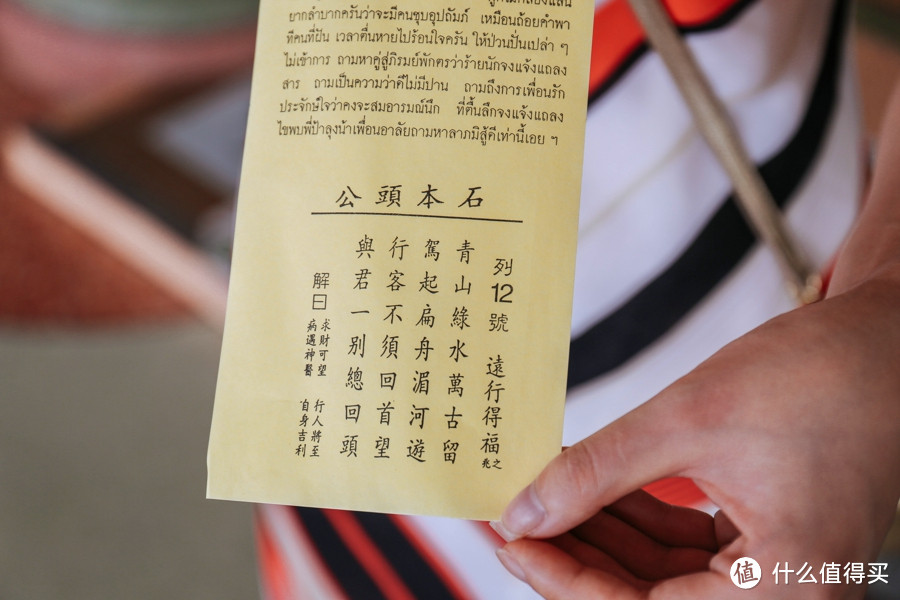 ยากลำบากครันว่าจะมีคนชุบอุปถัมภ์ เหมือนถ้อยคำพา
ทีคนที่ฝัน เวลาตื่นหายไปร้อนใจครัน ให้ป่วนปั่นเปล่า ๆ
ไม่เข้าการ ถามหาคู่สู่ภิรมย์พักตรว่าร้ายนักจงแจ้งแถลง
สาร ถามเป็นความว่าดีไม่มีปาน ถามถึงการเพื่อนรัก
ประจักษ์ใจว่าคงจะสมอารมณ์นึก ที่ตื้นลึกจงแจ้งแถลง
ไขพบพี่ป้าลุงน้าเพื่อนอาลัยถามหาลาภมิสู้ดีเท่านี้เอย ฯ
公頭本石
列12號 遠行得福之兆
青山綠水萬古留
駕起扁舟湄河遊
行客不須回首望
與君一別總回頭
解曰
求財可望 行人將至
病遇神醫 自身吉利
值 什么值得买